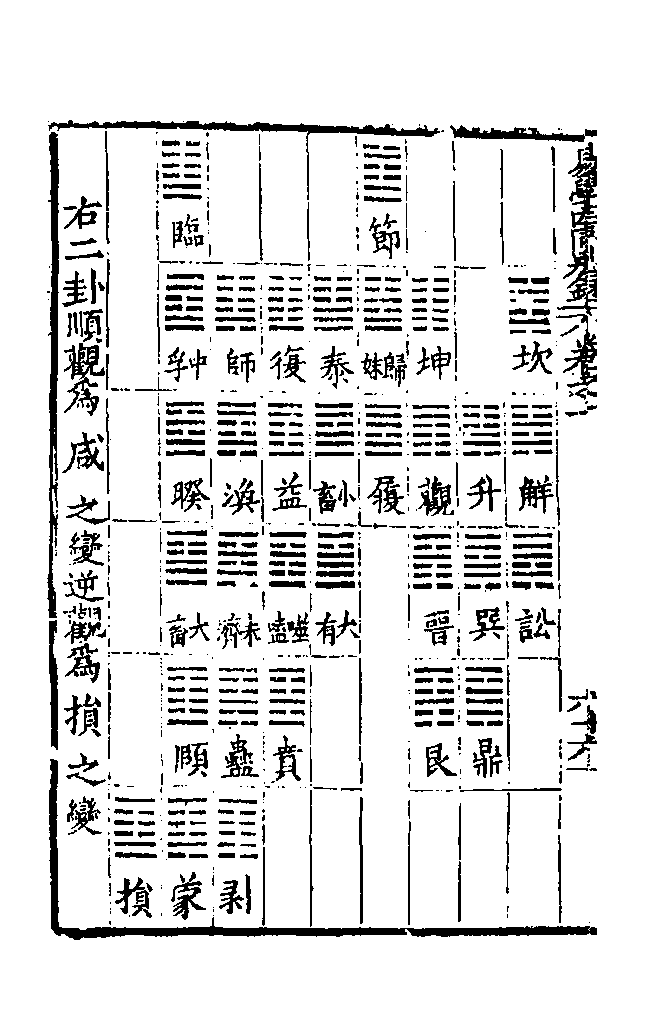 坎
解
訟
升
巽
鼎
坤
觀
晉
艮
節
歸妹
履
泰
小畜
大有
復
益
噬嗑
賁
師
渙
未濟
蠱
剥
臨
中孚
睽
大畜
頤
蒙
損
右二卦順觀爲咸之變逆觀爲損之變